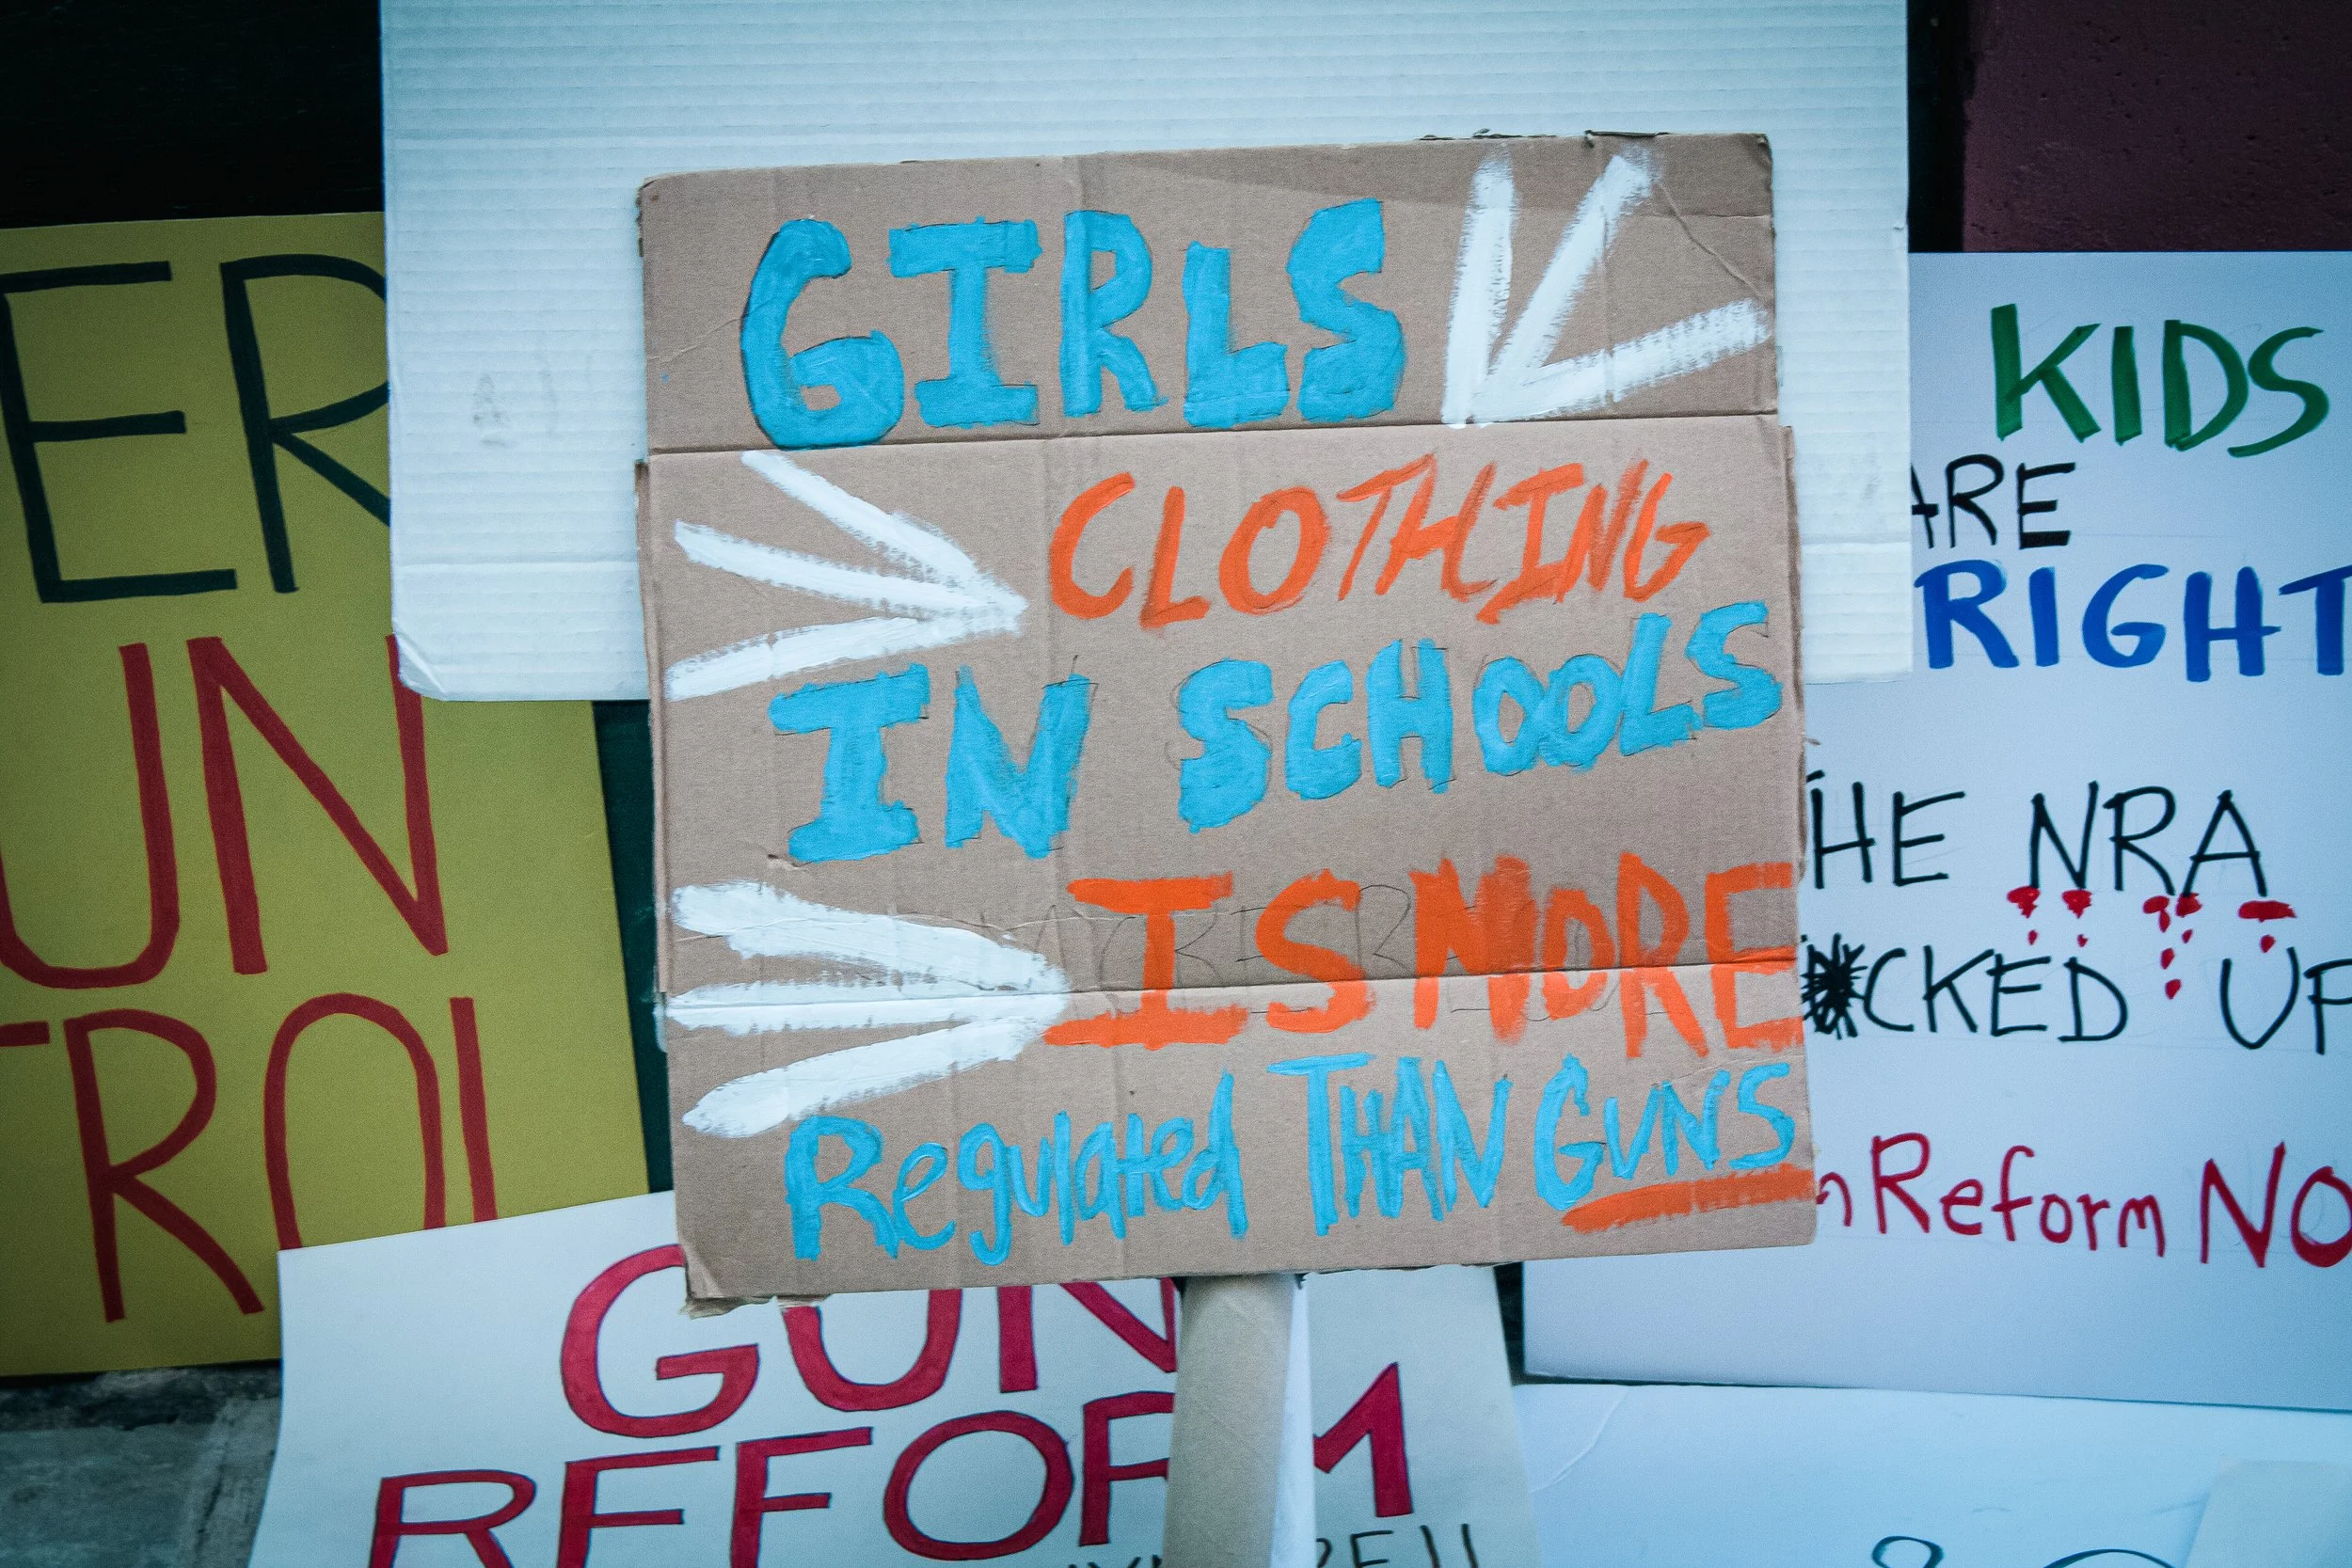 GIRLS
CLOTHING
IN SCHOOLS
IS MORE
Regulated THAN GUNS
ER
UN
TROL
KIDS
ARE
RIGHT
HE NRA
CKED UP
n Reform NO
GUN
REFORM